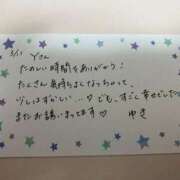 3/17 Yさん
たのしい時間をありがとう!
たくさん気持ちよくなっちゃって、
少しはずかしい...♡でも、すごく幸せでした
またお誘いまってます♡ ゆき